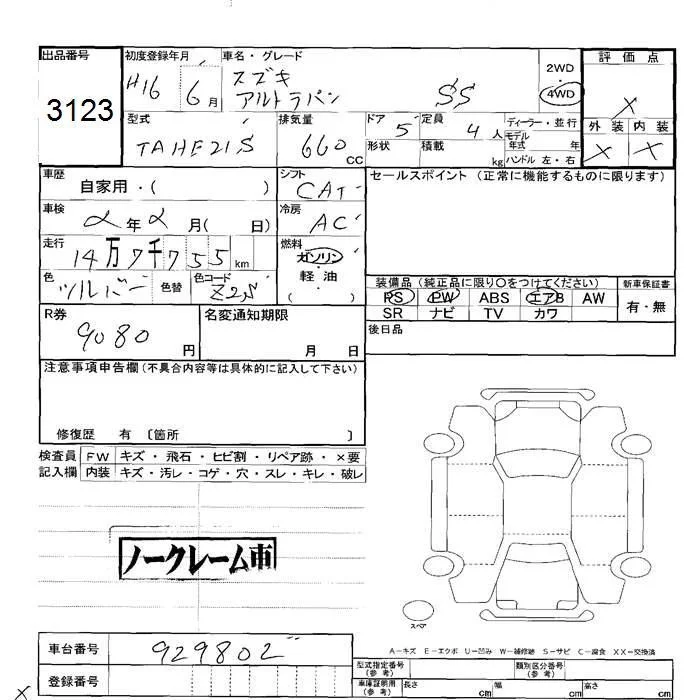 出品番号
3123
初度登録年月
H16 6月
車名・グレード
スズキ
アルトラパン SS
2WD
4WD
評価点
X
外装 内装
X X
型式
TA HE21S
排気量
660 CC
ドア
5
定員
4人
ディーラー・並行
モデル
年式 年
形状
積載
kg
ハンドル 左・右
車歴
自家用・( )
シフト
CAT
セールスポイント (正常に機能するものに限ります)
車検
2年2月( 日)
冷房
AC
走行
14万7千755km
燃料
ガソリン
軽油
( )
色
色替
色コード
Z2S
装備品 (純正品に限り○をつけてください)
新車保証書
PS PW ABS エアB AW
SR ナビ TV カワ
有・無
R券
9080円
名変通知期限
月 日
後日品
注意事項申告欄 (不具合内容等は具体的に記入して下さい)
修復歴 有 〔箇所 〕
検査員 FW キズ・飛石・ヒビ割・リペア跡・×要
記入欄 内装 キズ・汚レ・コゲ・穴・スレ・キレ・破レ
ノークレーム市
スペア
A-キズ E-エクボ U-凹み W-補修跡 S-サビ C-腐食 XX-交換済
車台番号
929802
登録番号
型式指定番号
(参考)
類別区分番号
(参考)
車庫証明用
(参考)
長さ cm 幅 cm 高さ cm
X